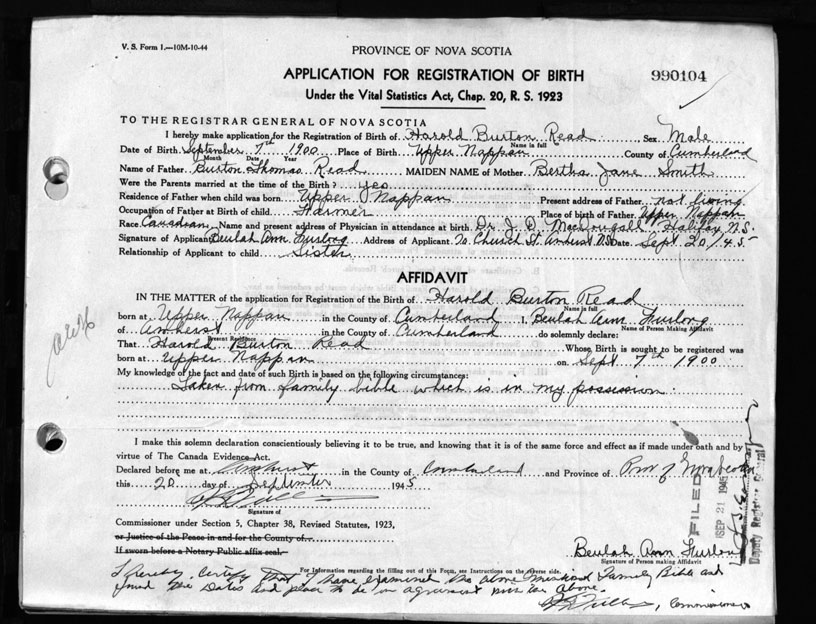 V. S. Form 1.—10M-10-44
PROVINCE OF NOVA SCOTIA
APPLICATION FOR REGISTRATION OF BIRTH
990104
Under the Vital Statistics Act, Chap. 20, R. S. 1923
TO THE REGISTRAR GENERAL OF NOVA SCOTIA
I hereby make application for the Registration of Birth of Harold Burton Read Sex Male
Name in full
Date of Birth September 7th 1900 Place of Birth Upper Nappan County of Cumberland
Month Date Year
Name of Father Burton Thomas Read MAIDEN NAME of Mother Bertha Jane Smith
Were the Parents married at the time of the Birth? yes
Residence of Father when child was born Upper Nappan Present address of Father not living
Occupation of Father at Birth of child Farmer Place of birth of Father Upper Nappan
Race Canadian Name and present address of Physician in attendance at birth Dr. J. D. MacDougall Halifax N.S.
Signature of Applicant Beulah Ann Furlong Address of Applicant 70 Church St. Amherst N.S. Date Sept 20/45
Relationship of Applicant to child Sister
AFFIDAVIT
IN THE MATTER of the application for Registration of the Birth of Harold Burton Read
Name in full
born at Upper Nappan in the County of Cumberland I, Beulah Ann Furlong
Name of Person Making Affidavit
of Amherst in the County of Cumberland do solemnly declare:
Present Residence
That Harold Burton Read Whose Birth is sought to be registered was
born at Upper Nappan on Sept 7th 1900
My knowledge of the fact and date of such Birth is based on the following circumstances:
Taken from family bible which is in my possession
I make this solemn declaration conscientiously believing it to be true, and knowing that it is of the same force and effect as if made under oath and by
virtue of The Canada Evidence Act.
Declared before me at Amherst in the County of Cumberland and Province of Prov of Nova Scotia
this 20 day of September 1945
Signature of
Commissioner under Section 5, Chapter 38, Revised Statutes, 1923,
or Justice of the Peace in and for the County of
If sworn before a Notary Public affix seal.
FILED
SEP 21 1945
Deputy Registrar General
Beulah Ann Furlong
Signature of Person making Affidavit
For Information regarding the filling out of this Form, see Instructions on the reverse side.
I hereby certify that I have examined the above mentioned Family Bible and
found the dates and place to be in agreement with the above.
Commissioner